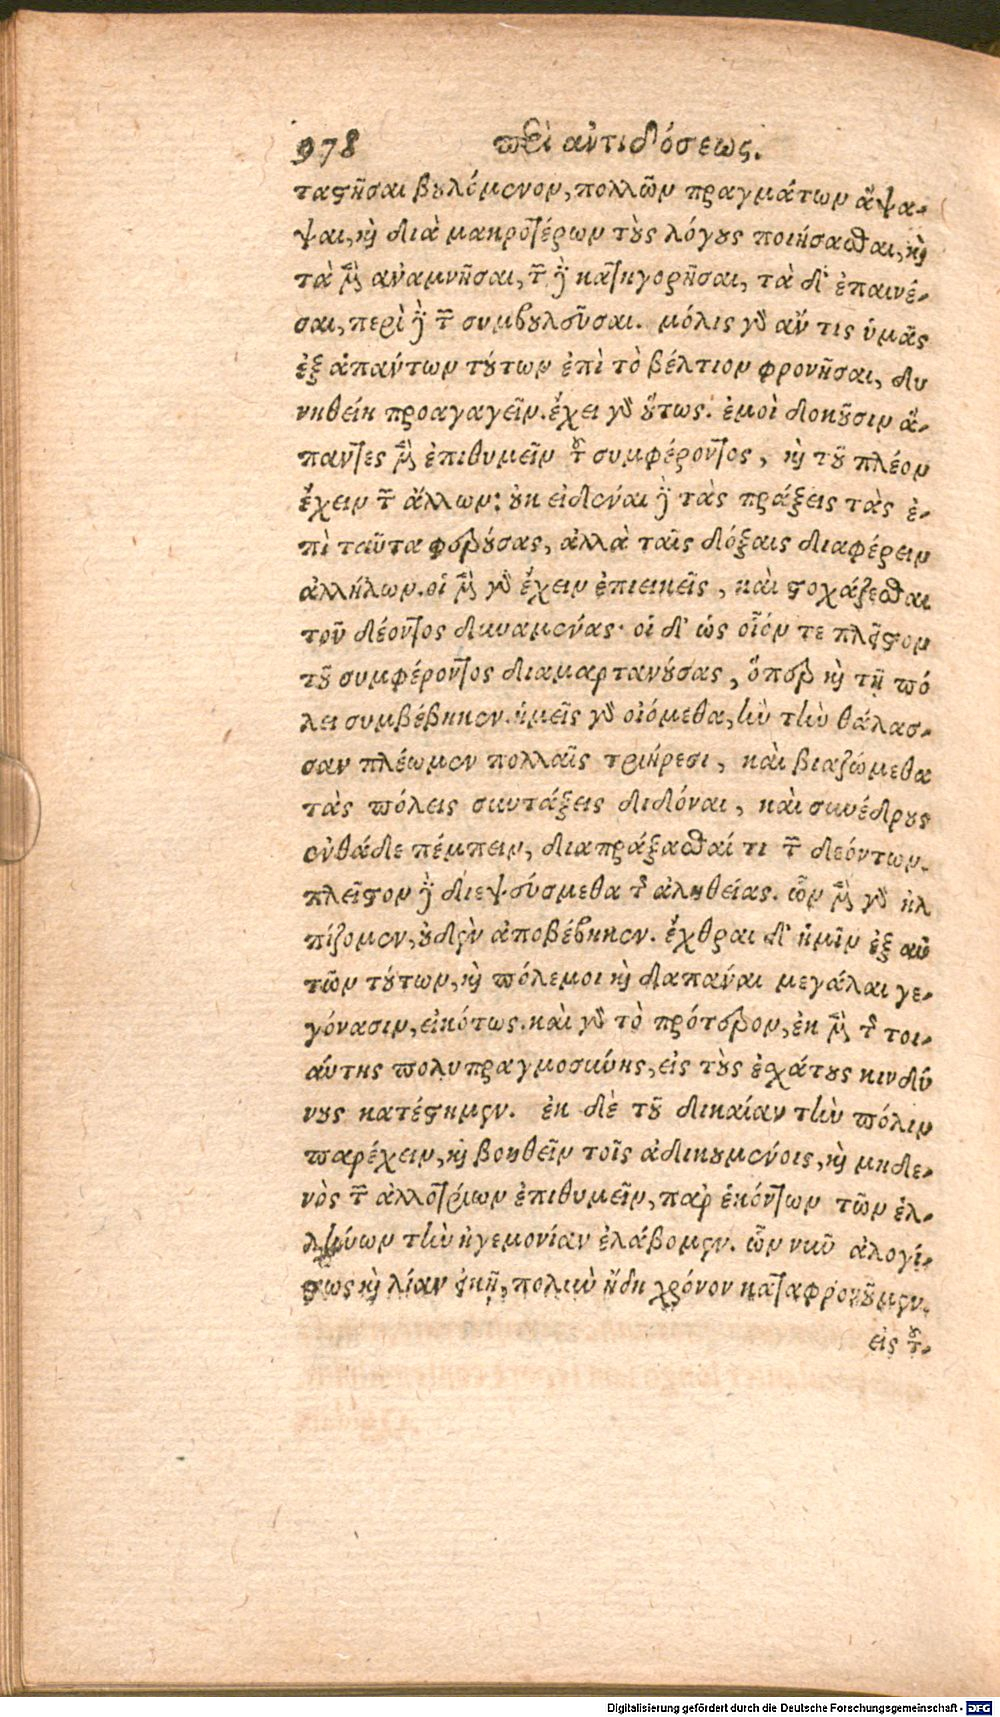 978 περὶ ἀντιδόσεως.
ταστῆσαι βουλόμενον, πολλῶν πραγμάτων ἅψα-
ψαι, καὶ διὰ μακροτέρων τοὺς λόγους ποιήσασθαι, καὶ
τὰ μὲν ἀναμνῆσαι, τῶν δὲ κατηγορῆσαι, τὰ δ' ἐπαινέ-
σαι, περὶ δὲ τῶν συμβουλεῦσαι. μόλις γὰρ ἄν τις ὑμᾶς
ἐξ ἁπάντων τούτων ἐπὶ τὸ βέλτιον φρονῆσαι, δυ
νηθείη προαγαγεῖν. ἔχει γὰρ οὕτως. ἐμοὶ δοκοῦσιν ἅ-
παντες μὲν ἐπιθυμεῖν τοῦ συμφέροντος, καὶ τοῦ πλέον
ἔχειν τῶν ἄλλων: οὐκ εἰδέναι δὲ τὰς πράξεις τὰς ἐ-
πὶ ταῦτα φερούσας, ἀλλὰ ταῖς δόξαις διαφέρειν
ἀλλήλων. οἱ μὲν γὰρ ἔχειν ἐπιεικεῖς, καὶ στοχάζεσθαι
τοῦ δέοντος δυναμένας· οἱ δ' ὡς οἷόν τε πλεῖστον
τοῦ συμφέροντος διαμαρτανούσας, ὅπερ καὶ τῇ πό
λει συμβέβηκεν. ἡμεῖς γὰρ οἰόμεθα, ἢν τὴν θάλασ-
σαν πλέωμεν πολλαῖς τριήρεσι, καὶ βιαζώμεθα
τὰς πόλεις συντάξεις διδόναι, καὶ συνέδρους
ἐνθάδε πέμπειν, διαπράξασθαί τι τῶν δεόντων.
πλεῖστον δὲ διεψεύσμεθα τῆς ἀληθείας. ὧν μὲν γὰρ ἠλ
πίζομεν, οὐδὲν ἀποβέβηκεν. ἔχθραι δ' ἡμῖν ἐξ αὐ
τῶν τούτων, καὶ πόλεμοι καὶ δαπάναι μεγάλαι γε-
γόνασιν, εἰκότως. καὶ γὰρ τὸ πρότερον, ἐκ μὲν τῆς τοι-
αύτης πολυπραγμοσύνης, εἰς τοὺς ἐσχάτους κινδύ
νους κατέστημεν. ἐκ δὲ τοῦ δικαίαν τὴν πόλιν
παρέχειν, καὶ βοηθεῖν τοῖς ἀδικουμένοις, καὶ μηδε-
νὸς τῶν ἀλλοτρίων ἐπιθυμεῖν, παρ' ἑκόντων τῶν ἑλ-
λήνων τὴν ἡγεμονίαν ἐλάβομεν. ὧν νῦν ἀλογί-
στως καὶ λίαν εἰκῇ, πολὺν ἤδη χρόνον καταφρονοῦμεν.
εἰς τοῦ-
Digitalisierung gefördert durch die Deutsche Forschungsgemeinschaft - DFG